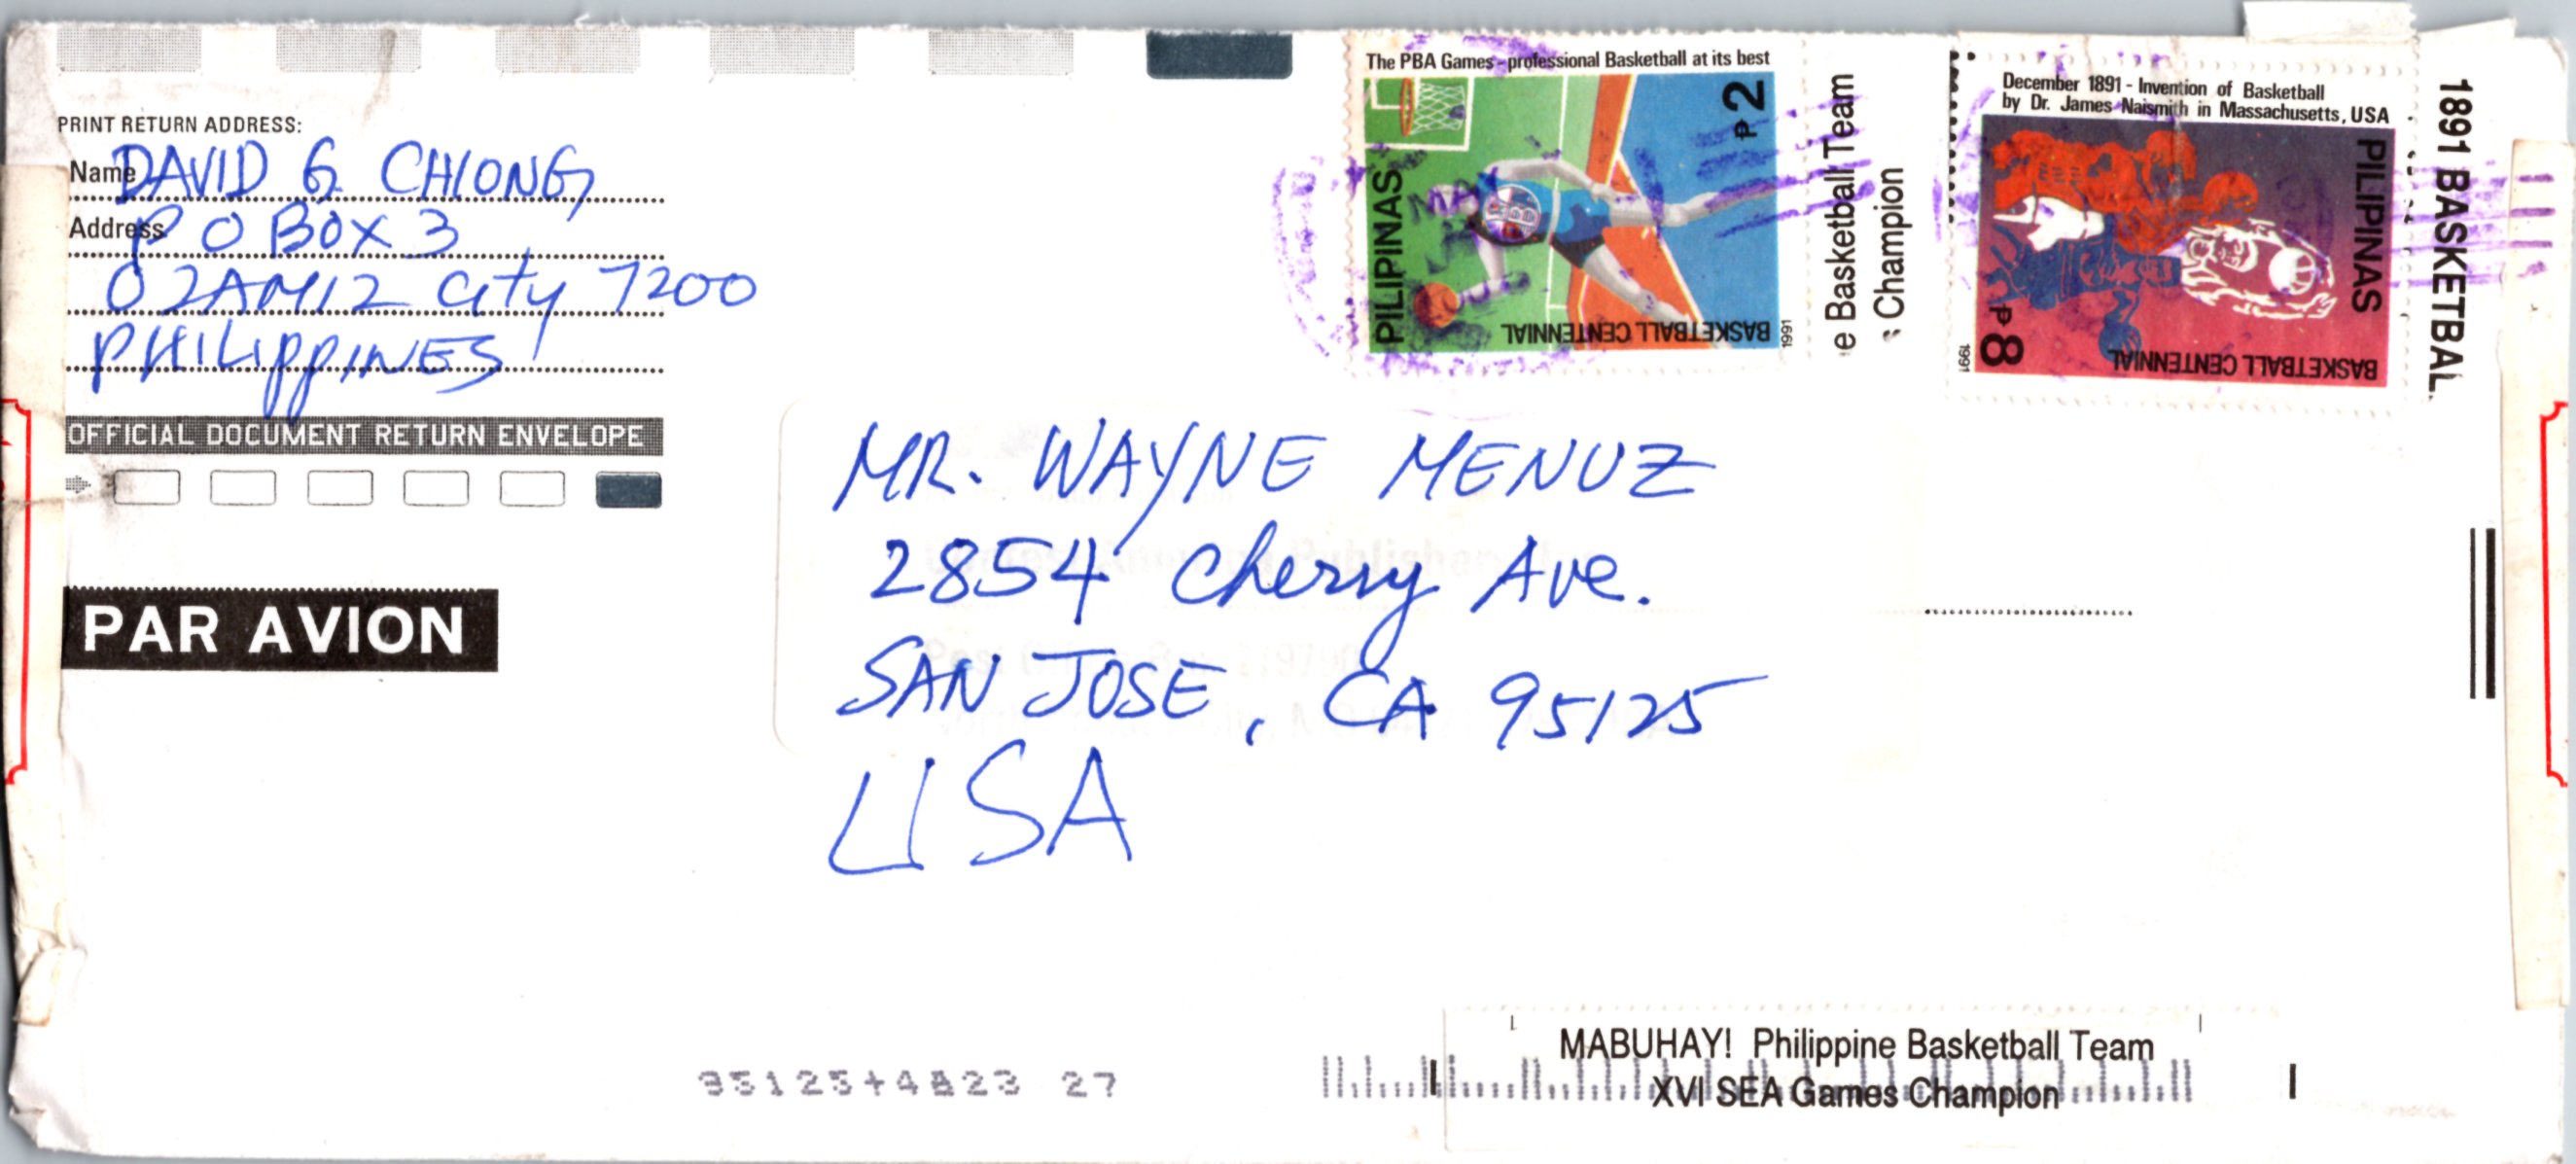 PRINT RETURN ADDRESS:
Name DAVID G. CHIONG
Address P O BOX 3
OZAMIZ City 7200
PHILIPPINES
OFFICIAL DOCUMENT RETURN ENVELOPE
PAR AVION
The PBA Games - professional Basketball at its best
PILIPINAS
₱2
BASKETBALL CENTENNIAL
1991
e Basketball Team
s Champion
December 1891 - Invention of Basketball
by Dr. James Naismith in Massachusetts, USA
PILIPINAS
₱8
BASKETBALL CENTENNIAL
1991
1891 BASKETBAL
MR. WAYNE MENUZ
2854 Cherry Ave.
SAN JOSE, CA 95125
USA
95125+4823 27
MABUHAY! Philippine Basketball Team
XVI SEA Games Champion